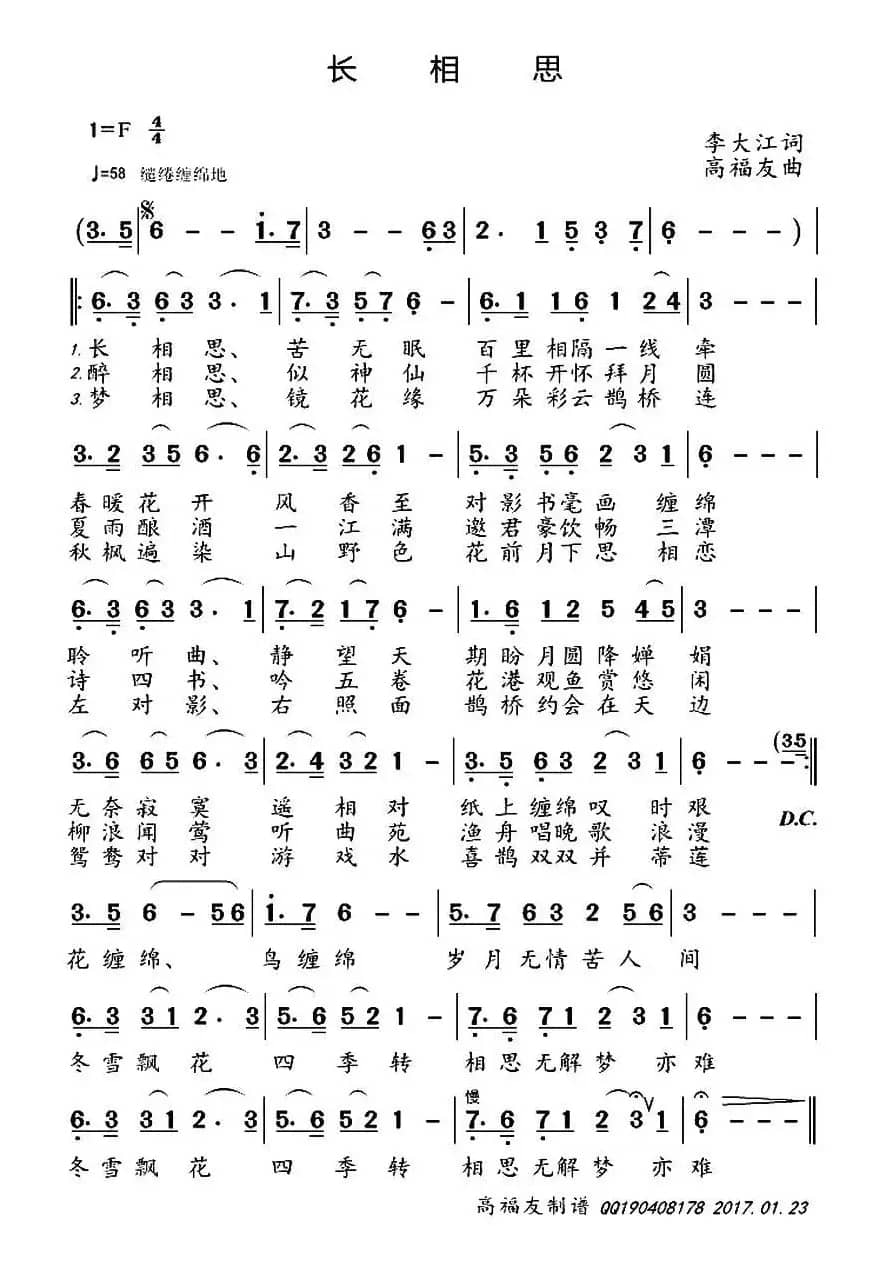 长 相 思
1=F 4/4
李大江词
♩=58 缱绻缠绵地
高福友曲
(3. 5 | 6 - - 1. 7 | 3 - - 6 3 | 2. 1 5 3 7 | 6 - - - ) |
|: 6. 3 6 3 3 . 1 | 7. 3 5 7 6 - | 6. 1 1 6 1 2 4 | 3 - - - |
1. 长 相 思、 苦 无 眠 百 里 相 隔 一 线 牵
2. 醉 相 思、 似 神 仙 千 杯 开 怀 拜 月 圆
3. 梦 相 思、 镜 花 缘 万 朵 彩 云 鹊 桥 连
3. 2 3 5 6 . 6 | 2. 3 2 6 1 - | 5. 3 5 6 2 3 1 | 6 - - - |
春 暖 花 开 风 香 至 对 影 书 毫 画 缠 绵
夏 雨 酿 酒 一 江 满 邀 君 豪 饮 畅 三 潭
秋 枫 遍 染 山 野 色 花 前 月 下 思 相 恋
6. 3 6 3 3 . 1 | 7. 2 1 7 6 - | 1. 6 1 2 5 4 5 | 3 - - - |
聆 听 曲、 静 望 天 期 盼 月 圆 降 婵 娟
诗 四 书、 吟 五 卷 花 港 观 鱼 赏 悠 闲
左 对 影、 右 照 面 鹊 桥 约 会 在 天 边
3. 6 6 5 6 . 3 | 2. 4 3 2 1 - | 3. 5 6 3 2 3 1 | 6 - - (3 5 - :||
无 奈 寂 寞 遥 相 对 纸 上 缠 绵 叹 时 艰
D.C.
柳 浪 闻 莺 听 曲 苑 渔 舟 唱 晚 歌 浪 漫
鸳 鸯 对 对 游 戏 水 喜 鹊 双 双 并 蒂 莲
3. 5 6 - 5 6 | 1. 7 6 - - | 5. 7 6 3 2 5 6 | 3 - - - |
花 缠 绵、 鸟 缠 绵 岁 月 无 情 苦 人 间
6. 3 3 1 2 . 3 | 5. 6 5 2 1 - | 7. 6 7 1 2 3 1 | 6 - - - |
冬 雪 飘 花 四 季 转 相 思 无 解 梦 亦 难
慢
6. 3 3 1 2 . 3 | 5. 6 5 2 1 - | 7. 6 7 1 2 3 1 | 6 - - - ||
冬 雪 飘 花 四 季 转 相 思 无 解 梦 亦 难
高福友制谱 QQ190408178 2017.01.23